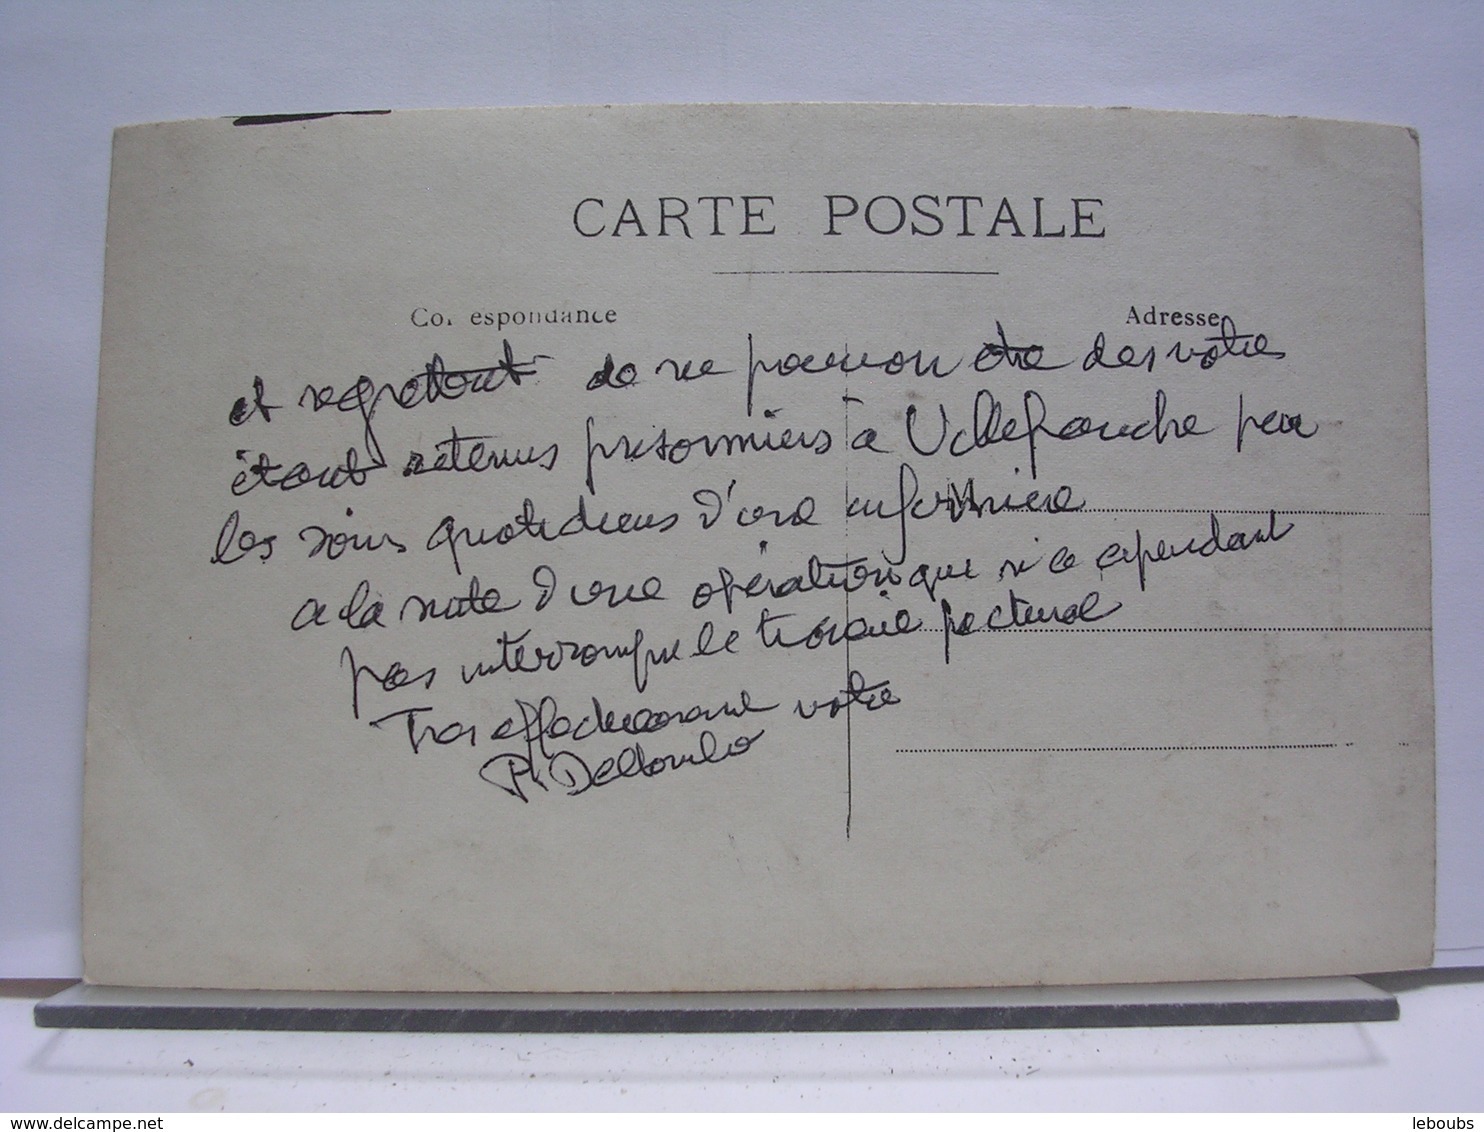 CARTE POSTALE
Co. espondance
Adresse
et regrettant de ne pouvoir être des votres
étant retenus prisonniers à Villefranche par
les soins quotidiens d'une infirmière
a la suite d'une opération que n'a cependant
pas interrompu le travail pectural
Tres affectueusement votre
P. Dellombo
© delcampe.net
leboubs